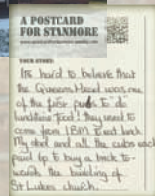 A POSTCARD
FOR STANMORE
YOUR STORY:
Its hard to believe that
the Queens Head was one
of the first pubs to do
lunchtime food! They used to
come from IBM Tired back.
My dad and all the cubs each
paid 1p to buy a brick to-
wards the building of
St Lukes church.